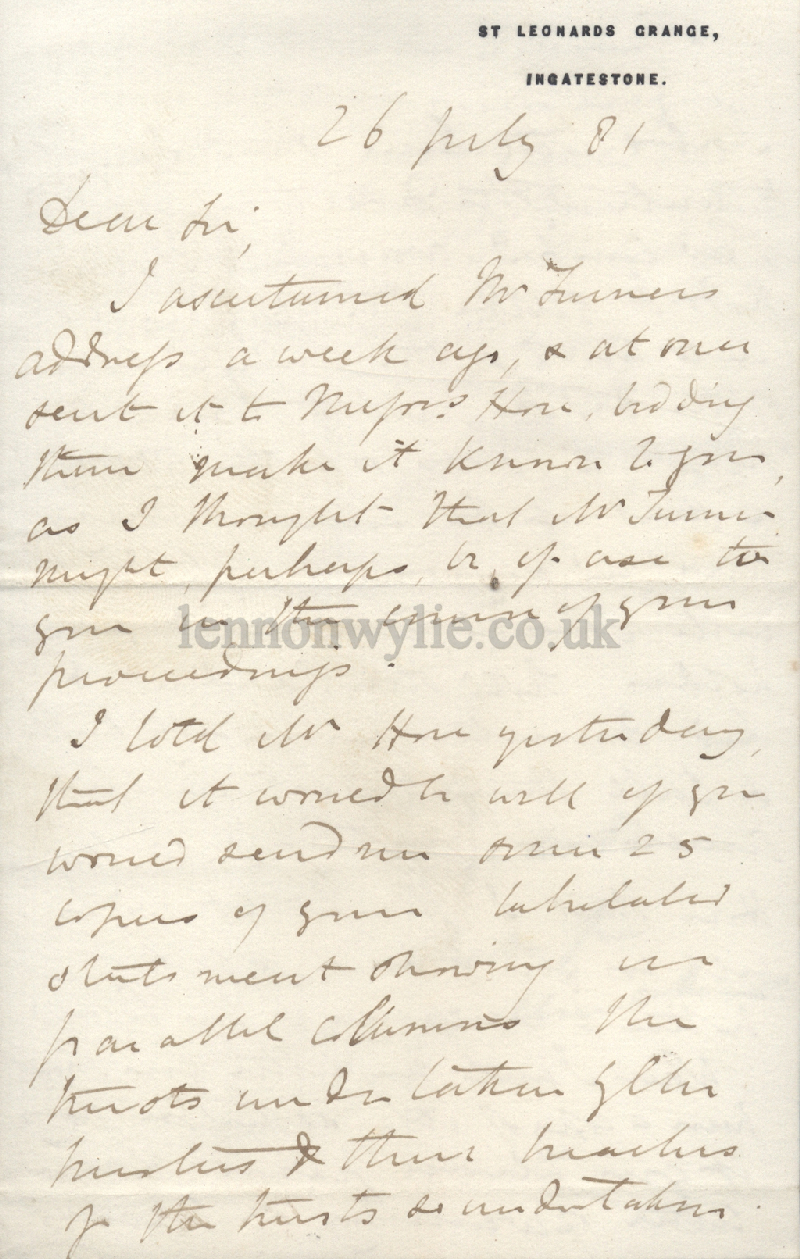 ST LEONARDS GRANGE,
INGATESTONE.
26 July 81
Dear Sir,
I ascertained Mr Turners
address a week ago, & at once
sent it to Messrs. Hore, bidding
them make it known to you,
as I thought that Mr Turner
might, perhaps, be of use to
you in the course of your
proceedings.
lennonwylie.co.uk
I told Mr Hore yesterday,
that it would be well if you
would send me some 25
copies of your tabulated
statement showing in
parallel collumns the
trusts undertaken by the
trustees & their breaches
of the trusts so undertaken.